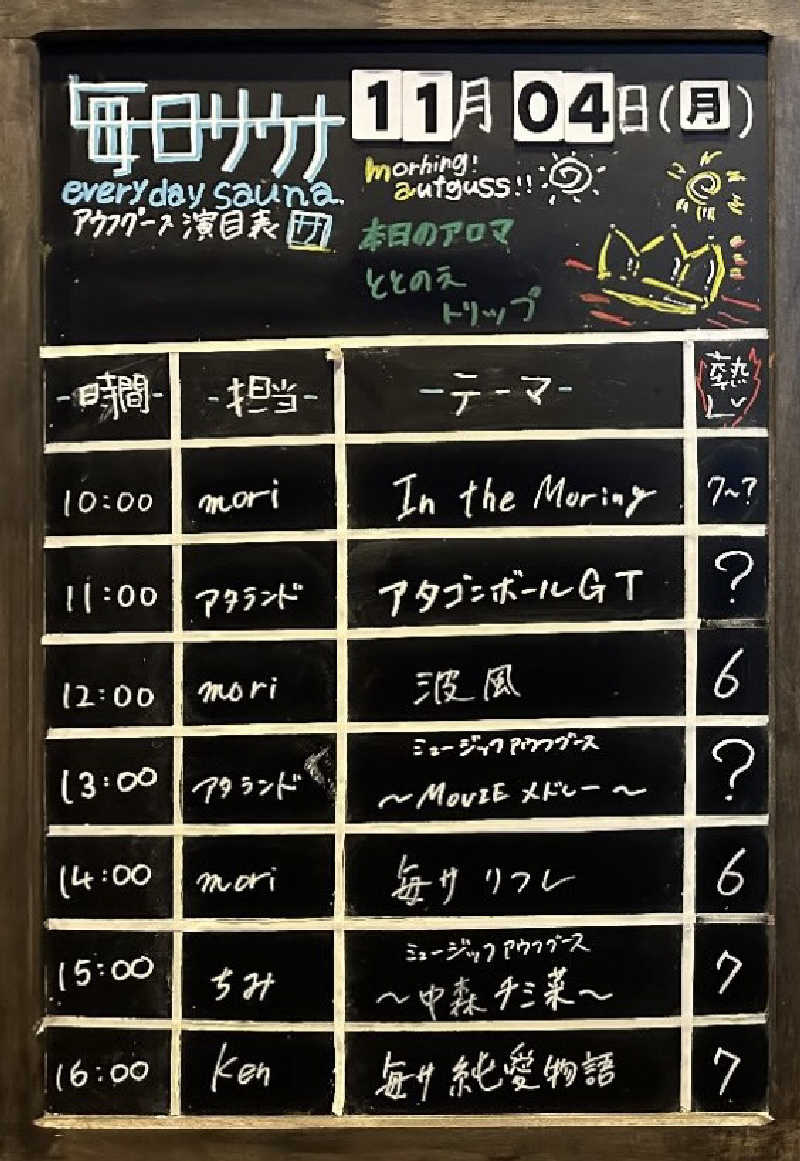 毎日サウナ
11月04日(月)
everyday sauna
morning!
autguss!!
アウフグース演目表 サ
本日のアロマ
ととのえ
トリップ
-時間- -担当- -テーマ- 熱レ
10:00 mori In the Moring 7~?
11:00 アタランド アタゴンボールGT ?
12:00 mori 波風 6
ミュージックアウフグース
13:00 アタランド ～MOVIE メドレー～ ?
14:00 mori 毎サ リフレ 6
ミュージックアウフグース
15:00 ちみ ～中森チミ菜～ 7
16:00 Ken 毎サ 純愛物語 7